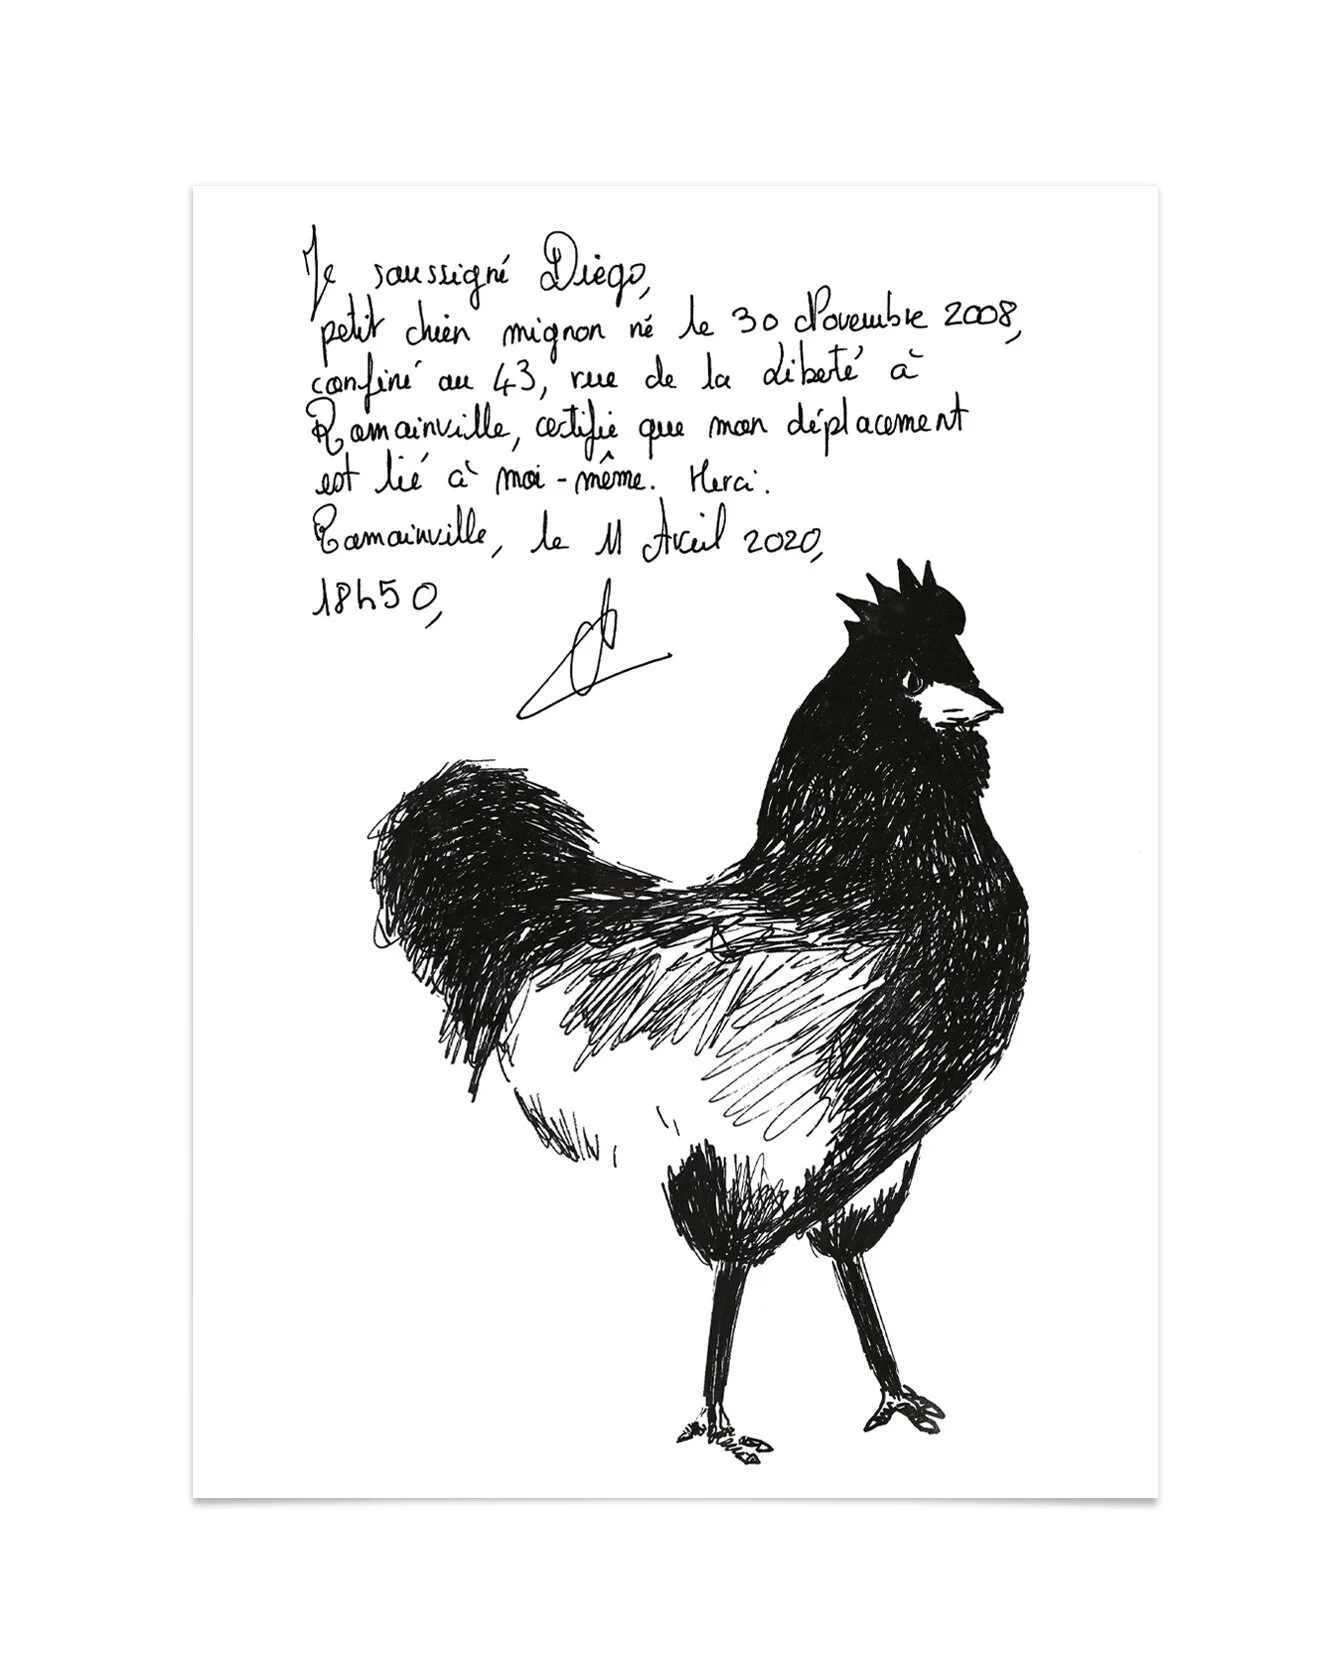 Je soussigné Diègo,
petit chien mignon né le 30 Novembre 2008,
confiné au 43, rue de la Liberté à
Romainville, certifie que mon déplacement
est lié à moi-même. Merci.
Romainville, le 11 Avril 2020,
18h50,